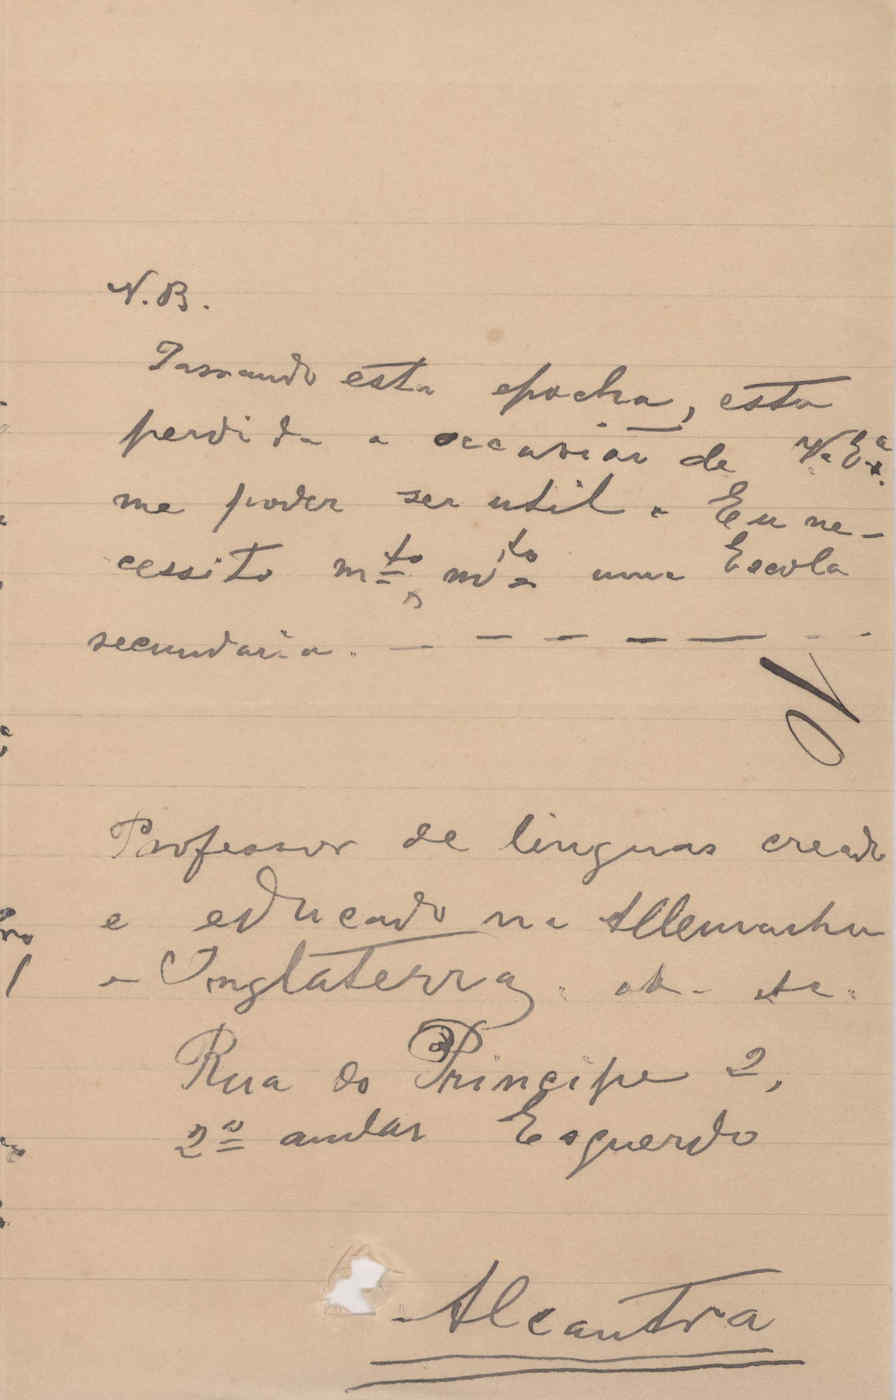 N.B.
Passando esta epocha, esta
perdida a occasião de V. Exª.
me poder ser util. Eu ne-
cessito mto, mto uma Escola
secundaria. — — — — —
10
Professor de linguas creado
e educado na Allemanha
e Inglaterra.
Rua do Principe 2,
2º andar Esquerdo
Alcantra